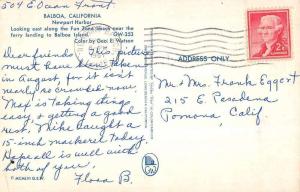 504 E Ocean Front
BALBOA, CALIFORNIA
Newport Harbor
Looking east along the Fun Zone beach near the
ferry landing to Balboa Island. GW-253
Color by Geo. E. Watson
Dear friends: This picture
must have been taken
in August, for it isn't
nearly so crowded now.
Max is taking things
easy & getting a good
rest. Mike caught a
15-inch mackerel today.
Hope all is well with
both of you.
Flora B.
ADDRESS ONLY
Mr. & Mrs. Frank Eggert
215 E. Pasadena
Pomona, Calif
2¢